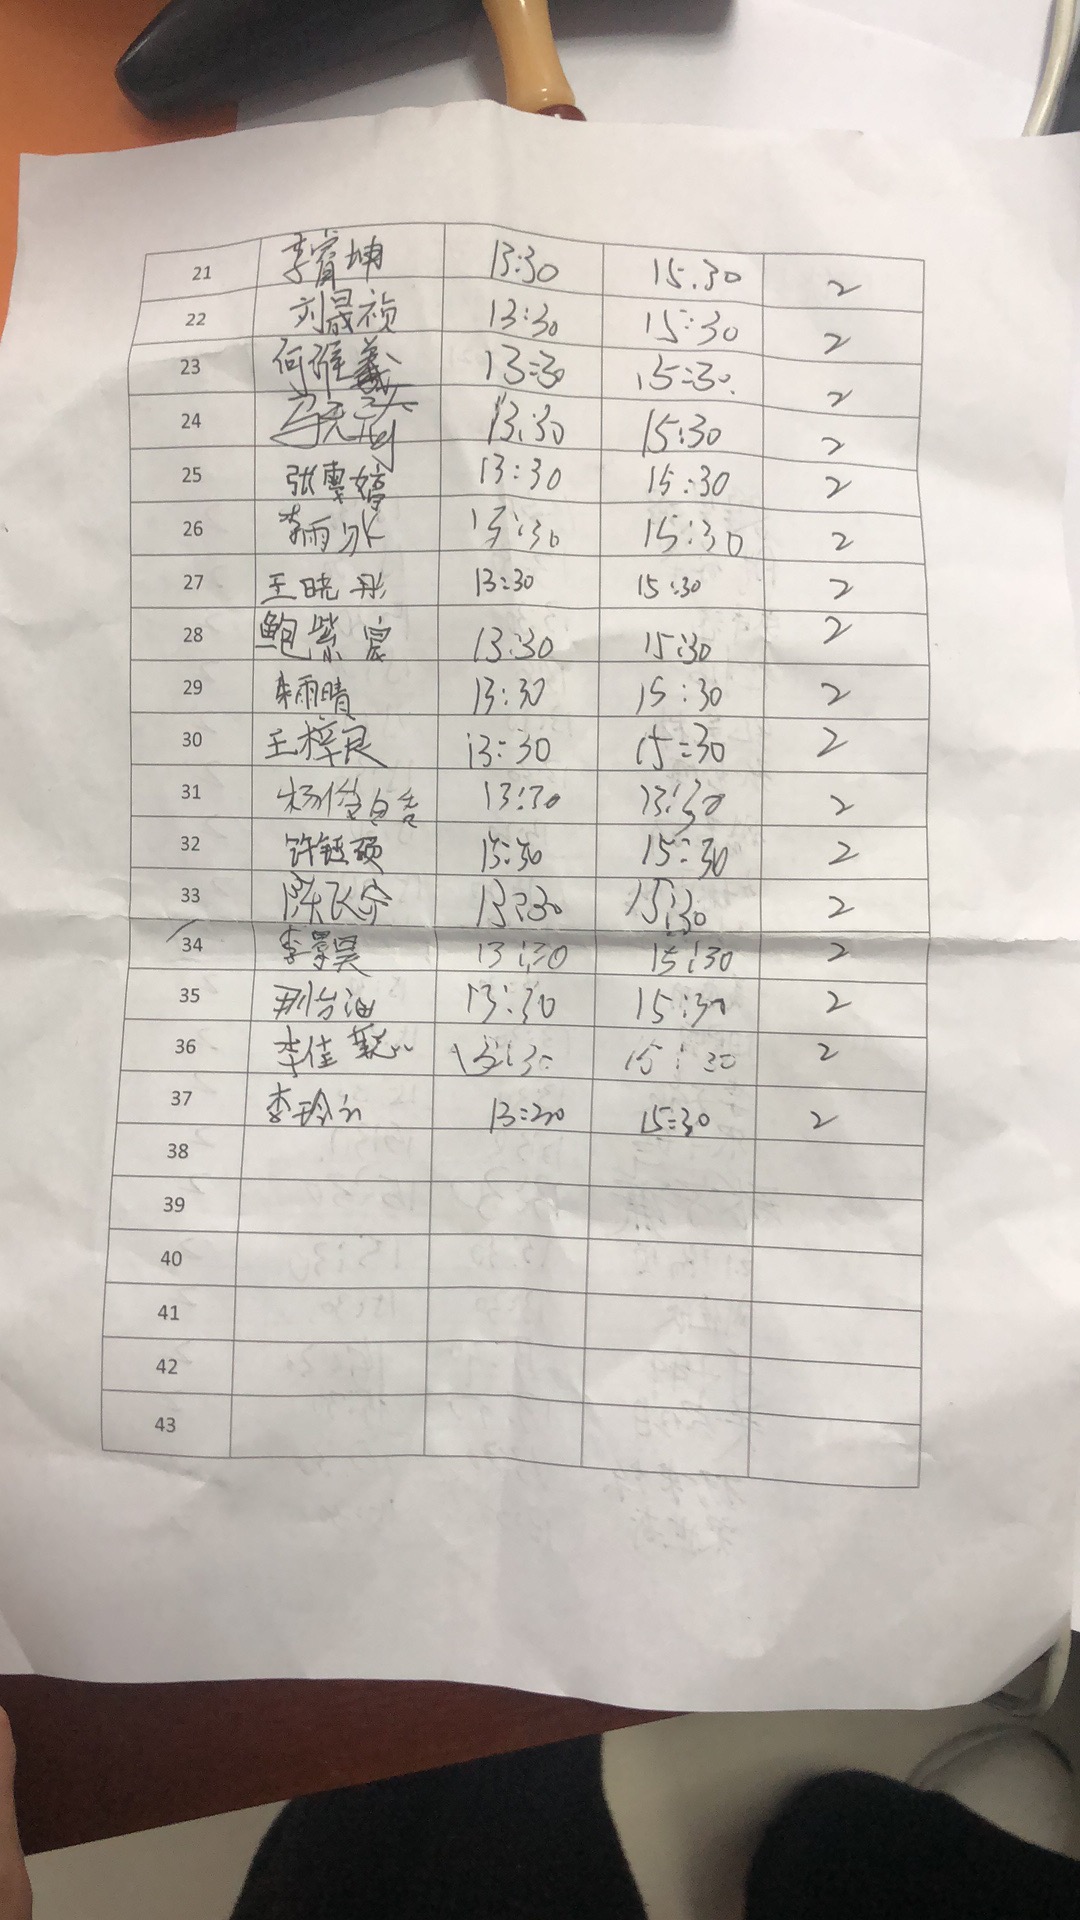 21 李睿坤 13:30 15:30 2
22 刘晟祯 13:30 15:30 2
23 何雅義 13:30 15:30 2
24 13:30 15:30 2
25 张惠婷 13:30 15:30 2
26 李雨冰 13:30 15:30 2
27 王晓彤 13:30 15:30 2
28 鲍紫宸 13:30 15:30 2
29 朱雨晴 13:30 15:30 2
30 王梓良 13:30 15:30 2
31 杨 13:30 13:30 2
32 许 15:30 15:30 2
33 陈飞 13:30 15:30 2
34 李景昊 13:30 15:30 2
35 13:30 15:30 2
36 李佳 15:30 2
37 李玲 13:30 15:30 2
38
39
40
41
42
43